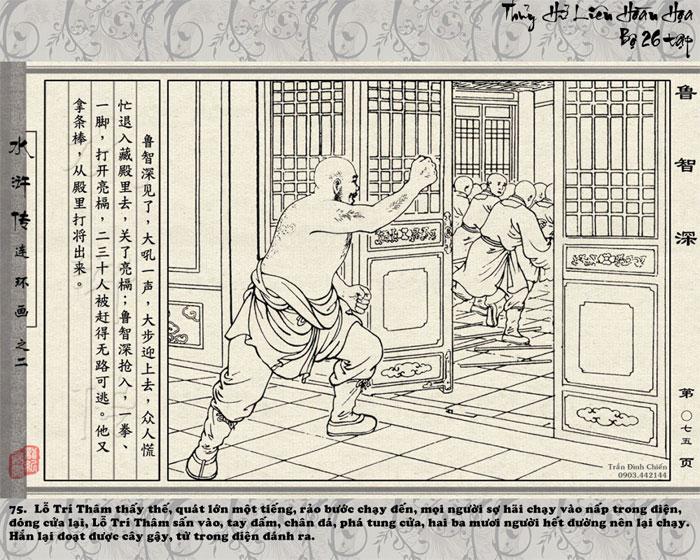 Thủy Hử Liên Hoàn Họa
Bộ 26 tập
鲁智深
水浒传连环画之二
鲁智深见了，大吼一声，大步迎上去，众人慌
忙退入藏殿里去，关了亮槅；鲁智深抢入，一拳、
一脚，打开亮槅，二三十人被赶得无路可逃。他又
拿条棒，从殿里打将出来。
第〇七五页
Trần Đình Chiến
0903.442144
75. Lỗ Trí Thâm thấy thế, quát lớn một tiếng, rảo bước chạy đến, mọi người sợ hãi chạy vào nấp trong điện,
đóng cửa lại, Lỗ Trí Thâm sấn vào, tay đấm, chân đá, phá tung cửa, hai ba mươi người hết đường nên lại chạy.
Hắn lại đoạt được cây gậy, từ trong điện đánh ra.